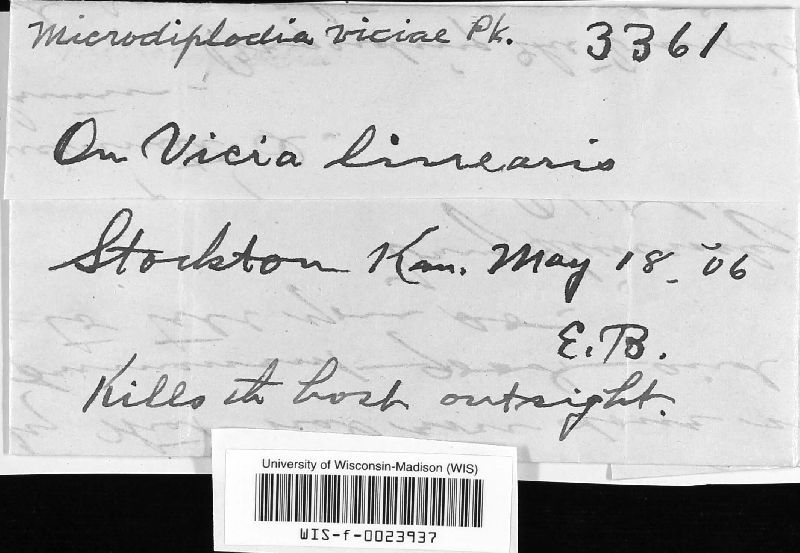 Microdiplodia viciae Pk. 3361
On Vicia linearis
Stockton Kan. May 18-06
E. B.
Kills its host outright.
University of Wisconsin-Madison (WIS)
WIS-f-0023937